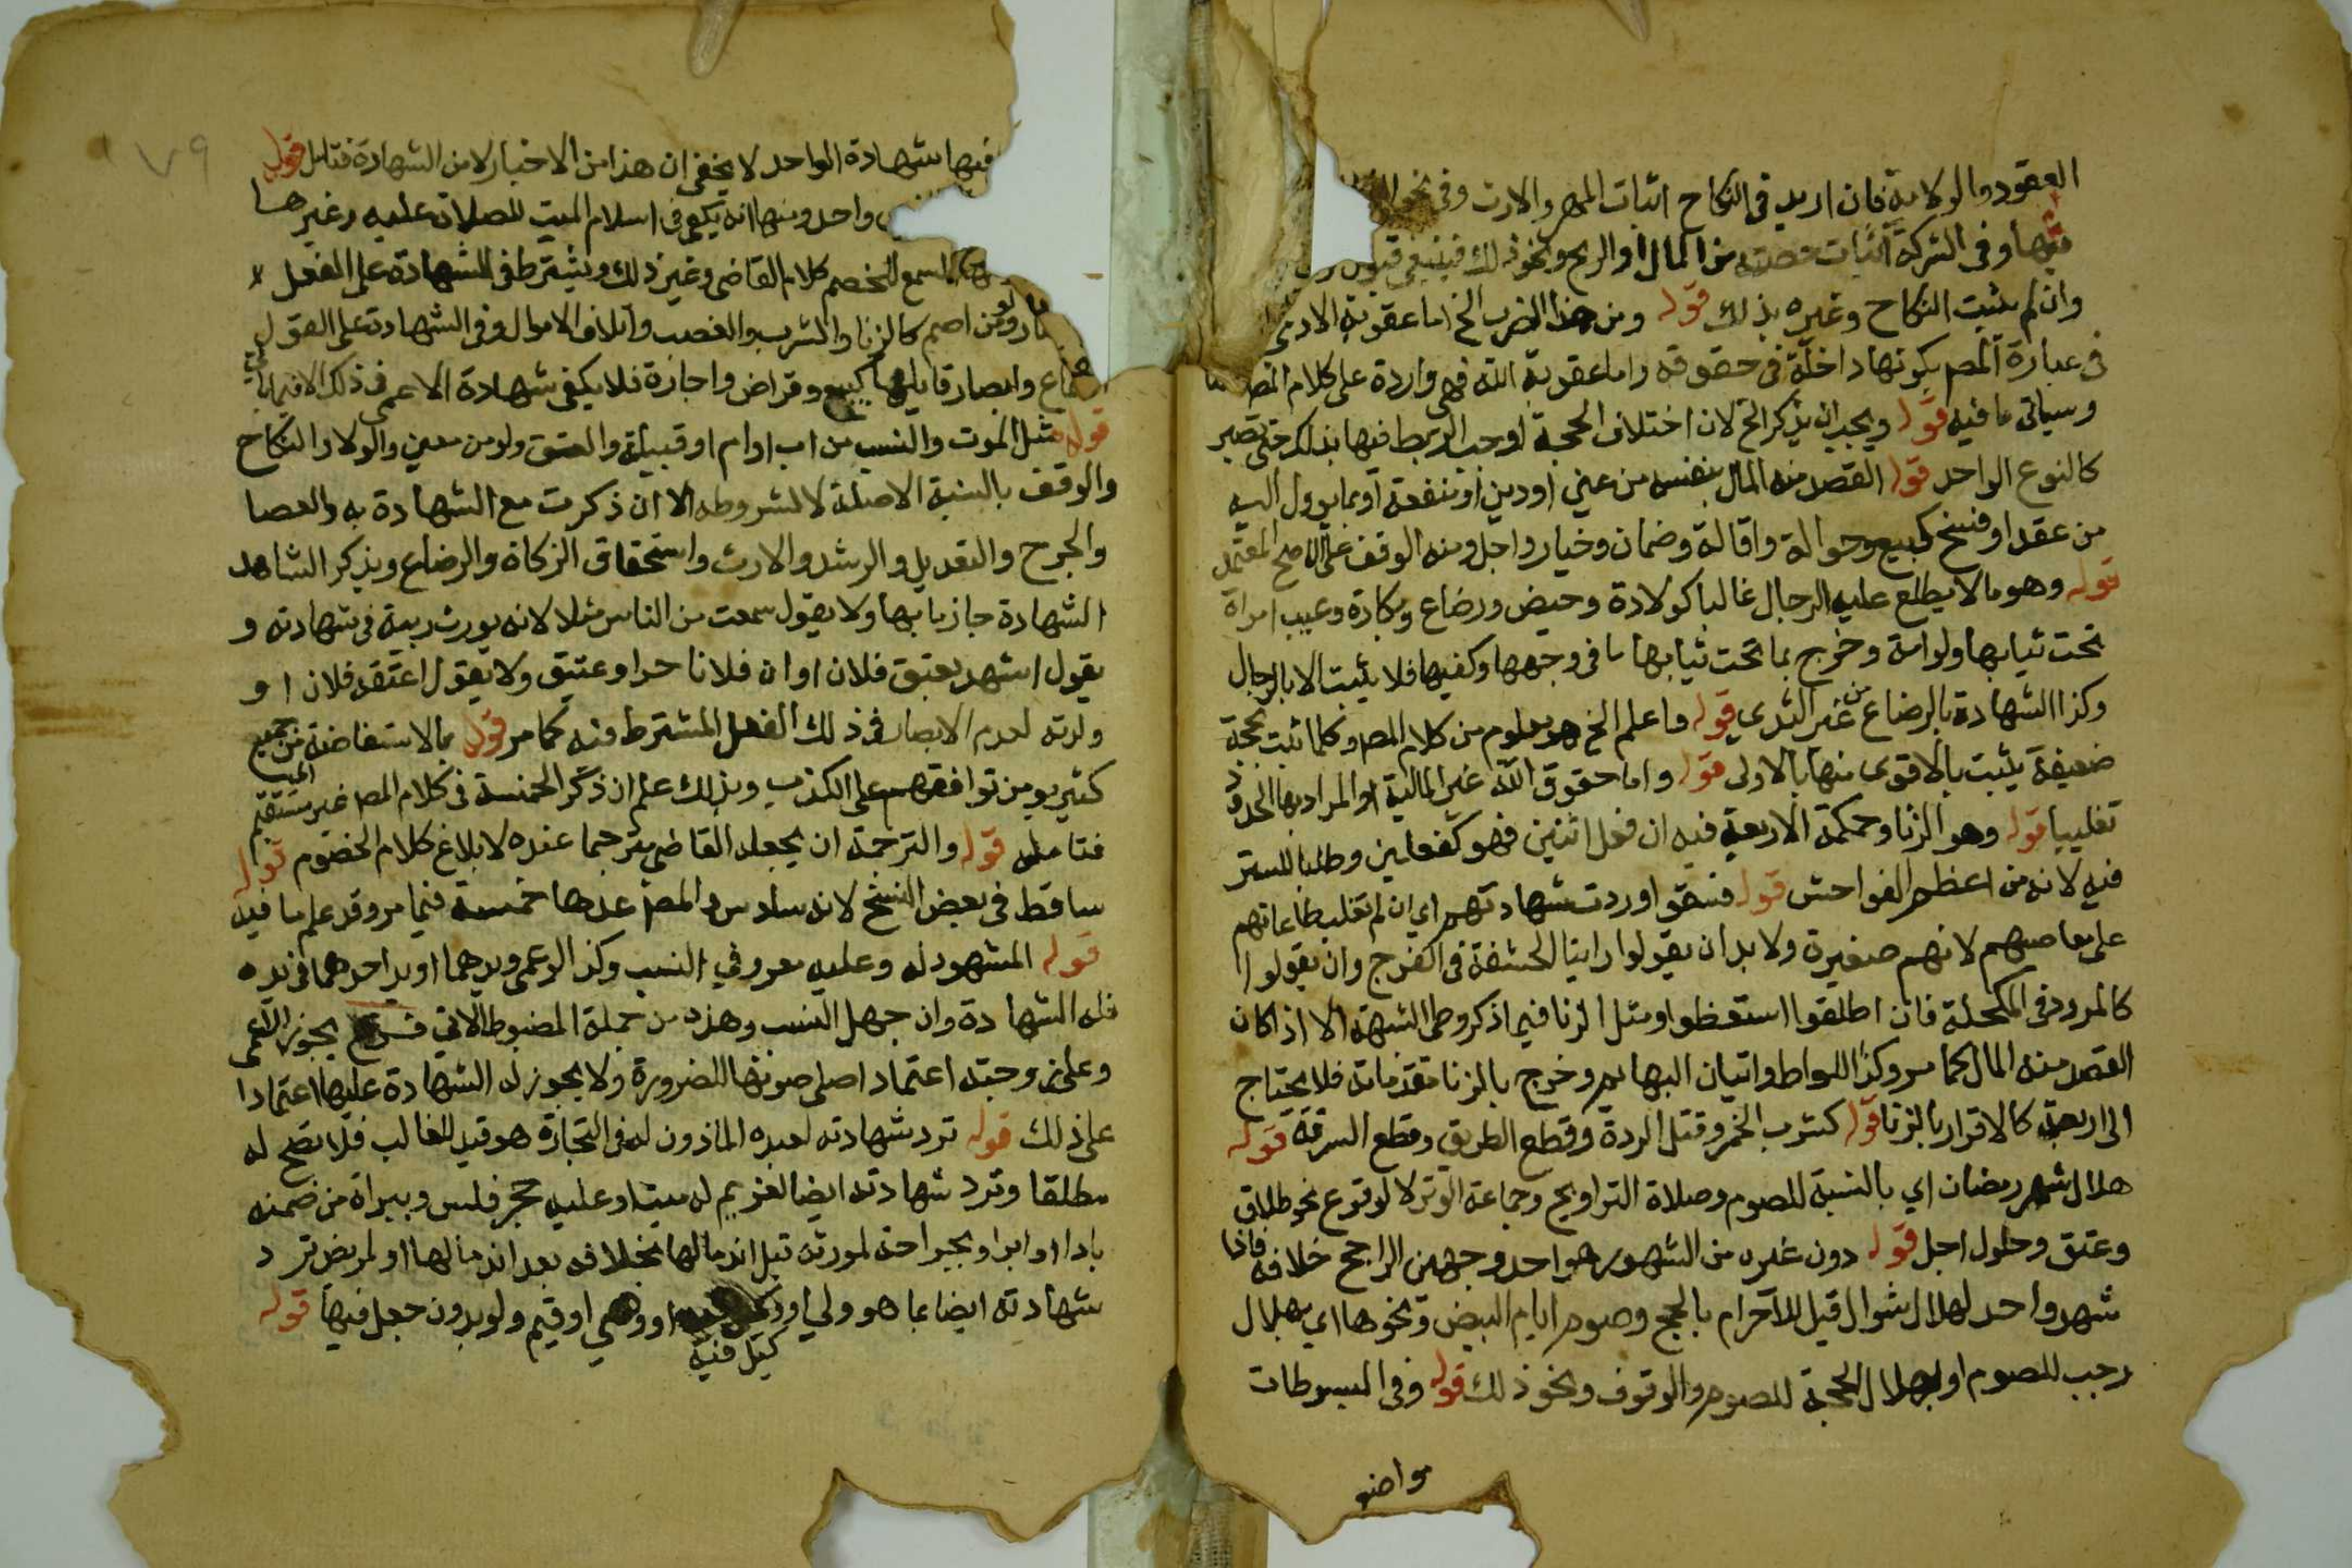 العقود والولاية فان اريد في النكاح اثبات المهر والارث وفي نحو
فيها وفي الشركة اثبات حصته من المال او الربح ونحو ذلك فينبغي قبول
وان لم يثبت النكاح وغيره بذلك قوله ومن هذا الضرب الخ اما عقوبة الادمى
في عبارة المص بكونها داخلة في حقوقه واما عقوبة الله فهي واردة على كلام المص
وسياتى ما فيه قوله ويجب ان يذكر الخ لان اختلاف الحجة اوجب الربط فيها بذلك حتى تصير
كالنوع الواحد قوله القصد منه المال بنفسه من عين او دين او منفعة او بما يوول اليه
من عقد او فسخ كبيع وحوالة واقالة وضمان وخيار واجل ومنه الوقف على الاصح المعتمد
قوله وهو ما لا يطلع عليه الرجال غالبا كولادة وحيض ورضاع وبكارة وعيب امراة
تحت ثيابها ولو امة وخرج بما تحت ثيابها ما في وجهها وكفيها فلا يثبت الا بالرجال
وكذا الشهادة بالرضاع من غير الثدى قوله واعلم الخ هو معلوم من كلام المص وكلما ثبت بحجة
ضعيفة يثبت بالاقوى منها بالاولى قوله واما حقوق الله غير المالية او المراد بها الحدود
تغليبا قوله وهو الزنا وحكمة الاربعة فيه ان فعل اثنين فهو كفعلين وطلبا للستر
فيه لانه من اعظم الفواحش قوله فسقوا وردت شهادتهم اي ان لم تغلب طاعاتهم
على معاصيهم لانهم صغيرة ولا بد ان يقولوا راينا الحشفة في الفرج وان يقولوا
كالمرود في المكحلة فان اطلقوا استحظوا ومثل الزنا فيما ذكر وطى الشبهة الا اذا كان
القصد منه المال كما مر وكذا اللواط واتيان البهايم وخرج بالزنا مقدماته فلا يحتاج
الى اربعة كالاقرار بالزنا قوله كشرب الخمر وقتل الردة وقطع الطريق وقطع السرقة قوله
هلال شهر رمضان اي بالنسبة للصوم وصلاة التراويح وجماعة الوتر لا لوقوع نحو طلاق
وعتق وحلول اجل قوله دون غيره من الشهور هو احد وجهين الراجح خلافه فاذا
شهد واحد لهلال شوال قيل للاحرام بالحج وصوم ايام البيض ونحوها اي بهلال
رجب للصوم او بهلال الحجة للصوم والوقوف ونحو ذلك قوله وفي المبسوطات
مواضع
٧٩
فيها شهادة الواحد لا يخفى ان هذا من الاخبار لا من الشهادة فتامل قوله
واحد ومنها انه يكفى في اسلام الميت للصلاة عليه وغيرها
المسمع للخصم كلام القاضى وغير ذلك ويشترط في الشهادة على الفعل
ولو من اصم كالزنا والشرب والغصب واتلاف الاموال وفي الشهادة على القول
وابصار قايلها كبيع وقراض واجازة فلا يكفى شهادة الاعمى في ذلك الا فيما ياتي
قوله مثل الموت والنسب من اب او ام او قبيلة والعتق ولو من معين والولا والنكاح
والوقف بالنسبة لاصله لا لشروطه الا ان ذكرت مع الشهادة به والعصا
والجرح والتعديل والرشد والارث واستحقاق الزكاة والرضاع ويذكر الشاهد
الشهادة جازما بها ولا يقول سمعت من الناس مثلا لانه يورث ريبة في شهادته و
يقول اشهد بعتق فلان او ان فلانا حر او عتيق ولا يقول اعتقه فلان او
ولدته لعدم الابصار في ذلك الفعل المشترط فيه كما مر قوله بالاستفاضة من جمع
كثير يومن توافقهم على الكذب وبذلك علم ان ذكر الخمسة في كلام المص غير مستقيم
فتامله قوله والترجمة ان يجعله القاضى مترجما عنده لابلاغ كلام الخصوم قوله
ساقط في بعض النسخ لانه سادس والمص عدها خمسة فيما مر وقد علم ما فيه
قوله المشهود له وعليه معروفي النسب وكذا لو عمى ويدهما او يد احدهما في يده
فله الشهادة وان جهل النسب وهذه من جملة المضبوط الاتي يجوز للاعمى
وطى زوجته اعتمادا على صوتها للضرورة ولا يجوز له الشهادة عليها اعتمادا
على ذلك قوله ترد شهادته لعبده الماذون له في التجارة هو قيد للغالب فلا تصح له
مطلقا وترد شهادته ايضا لغريم له ميتا وعليه حجر فلس وببراة من ضمنه
بادا او ابرا وبجراحة لمورثه قبل اندمالها بخلافه بعد اندمالها او لمريض ترد
شهادته ايضا بما هو ولي او وصي او قيم ولو بدون جعل فيها قوله
كيل فيه